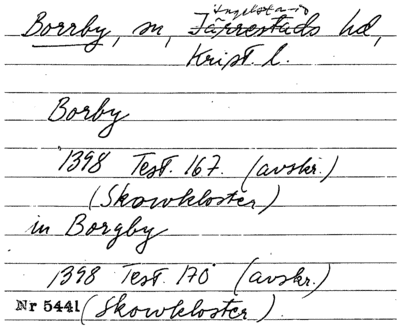 Borrby, sn, Ingelstads
Järrestads hd,
Krist. l.
Borby
1398 Test. 167. (avskr.)
(Skowkloster)
in Borgby
1398 Test. 170 (avskr.)
Nr 5441 (Skowkloster).